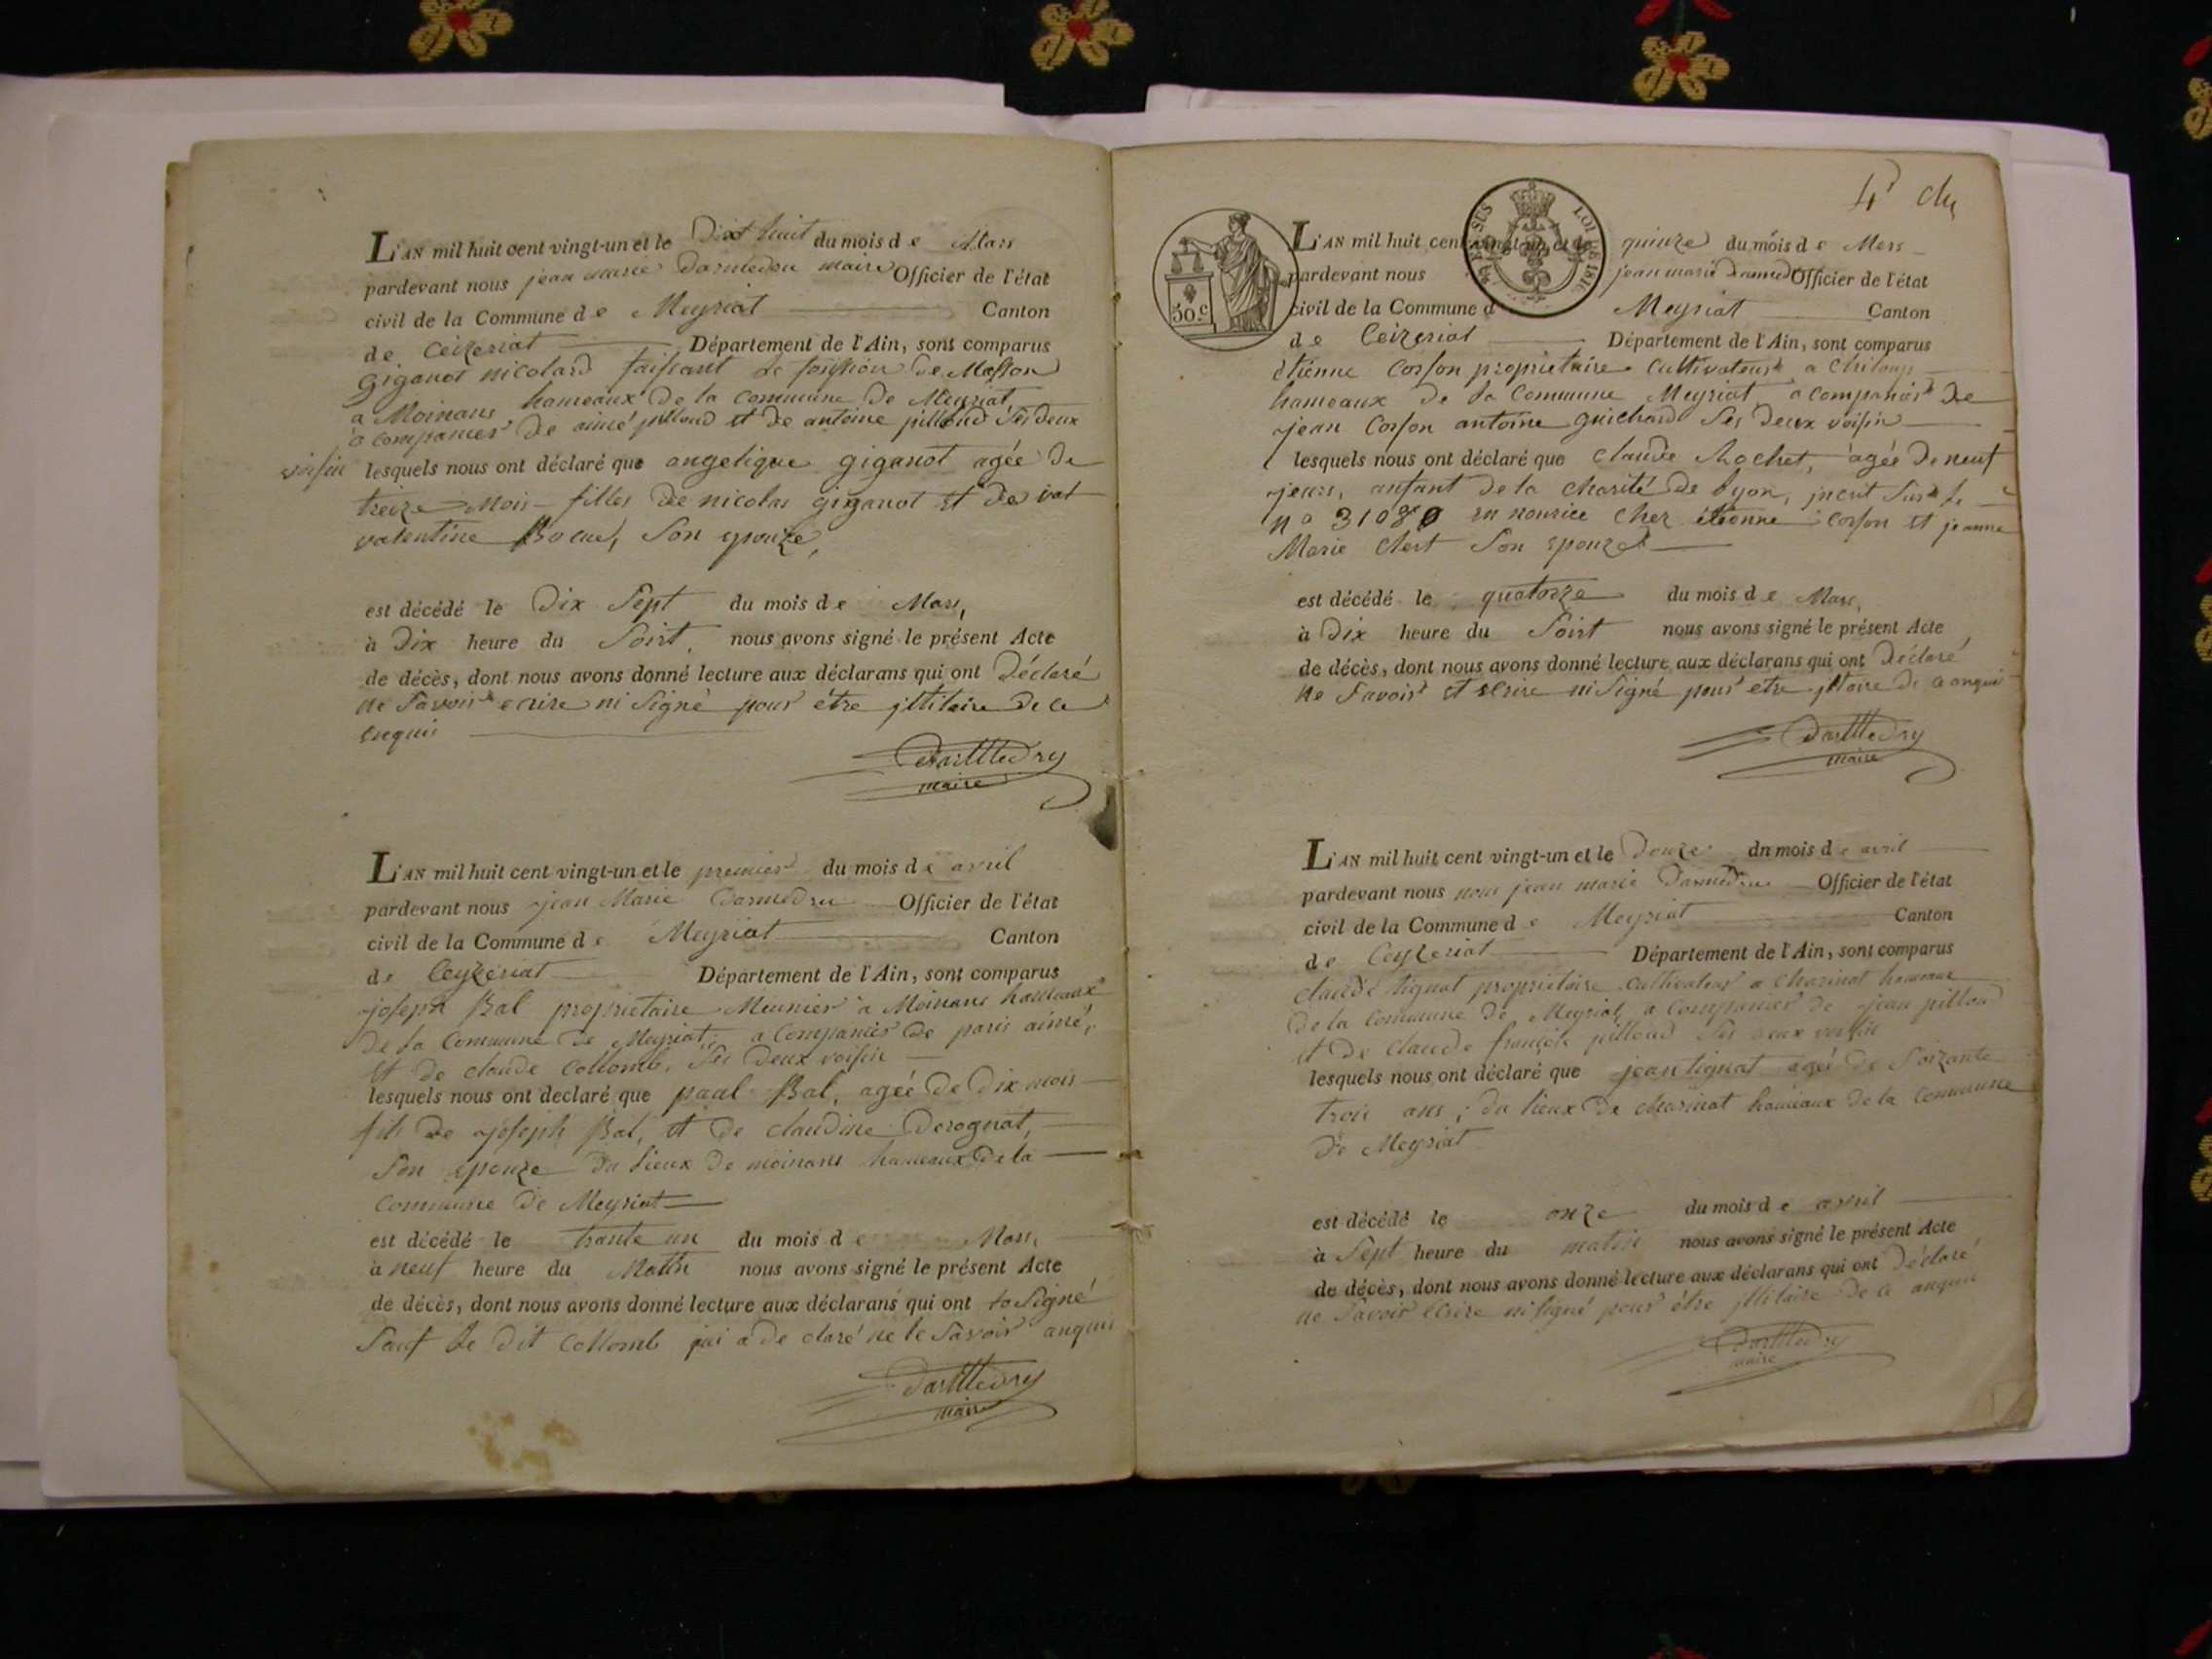 L'AN mil huit cent vingt-un et le Dixt huit du mois de Mars
pardevant nous jean marie Darmedru maire Officier de l'état
civil de la Commune de Meyriat Canton
de Ceizeriat Département de l'Ain, sont comparus
giganot nicolard faissant de Masson
a Moinans hameaux de la Commune de Meyriat
a companies de aimé pilloud et de antoine pilloud Ses deux
voisin lesquels nous ont déclaré que angelique giganot agée de
treize Mois filles de nicolas giganot et de vat
valentine Son epouze,
est décédé le Dix Sept du mois de Mars,
à Dix heure du Soirt, nous avons signé le présent Acte
de décès, dont nous avons donné lecture aux déclarans qui ont Déclaré
ne Savoir ecrire ni Signé pour être jllitaire de ce
enquis
Darmedru
maire
L'AN mil huit cent vingt-un et le premier du mois de avril
pardevant nous jean Marie Darmedru Officier de l'état
civil de la Commune de Meyriat Canton
de Ceyzeriat Département de l'Ain, sont comparus
joseph Bal propriétaire Meunier a Moinans hameaux
de la Commune de Meyriat, a companies de paris aimé,
et de claude Collomb, Ses Deux voisin
lesquels nous ont declaré que paul Bal, agée de Dix mois
fils de joseph Bal, et de claudine Derognat,
Son epouze du Lieux de moinans hameaux de la
Commune de Meyriat
est décédé le trante un du mois de Mars,
à neuf heure du Matin nous avons signé le présent Acte
de décès, dont nous avons donné lecture aux déclarans qui ont Signé
Sauf le dit Collomb qui a de claré ne le Savoir anquis
Darmedru
maire
4
L'AN mil huit cent vingt-un et le quinze du mois de Mars
pardevant nous jean marie Darmedru Officier de l'état
civil de la Commune d Meyriat Canton
de Ceizeriat Département de l'Ain, sont comparus
etienne Corson propriétaire Cultivateur a Chiloup
hameaux de la Commune Meyriat a companies de
jean Corson antoine guichard Ses deux voisin
lesquels nous ont déclaré que Claude Rochet, agée de neuf
jours, anfant de la charité de Lyon, jncrit Sur le
no 31080 en nourice Chez etienne Corson et jeanne
Marie Clert Son epouze
est décédé le quatorze du mois de Mars,
à Dix heure du Soirt nous avons signé le présent Acte
de décès, dont nous avons donné lecture aux déclarans qui ont Déclaré
ne Savoir et ecrire ni Signé pour etre de anquis
Darmedru
maire
30.c
LOI DE 1816
L'AN mil huit cent vingt-un et le Douze du mois de avril
pardevant nous nous jean marie Darmedru Officier de l'état
civil de la Commune de Meyriat Canton
de Ceyzeriat Département de l'Ain, sont comparus
claude tignat propriétaire Cultivateur a Charinat hameaux
de la Commune de Meyriat a Companies de jean pilloud
et de claude françois pilloud Ses deux voisin
lesquels nous ont déclaré que jean tignat agée de Soizante
trois ans, du lieux de charinat hameaux de la Commune
de Meyriat
est décédé le onze du mois de avril
à Sept heure du matin nous avons signé le présent Acte
de décès, dont nous avons donné lecture aux déclarans qui ont Déclaré
ne Savoir ecrire ni signé pour être jllitaire de ce anquis
Darmedru
maire